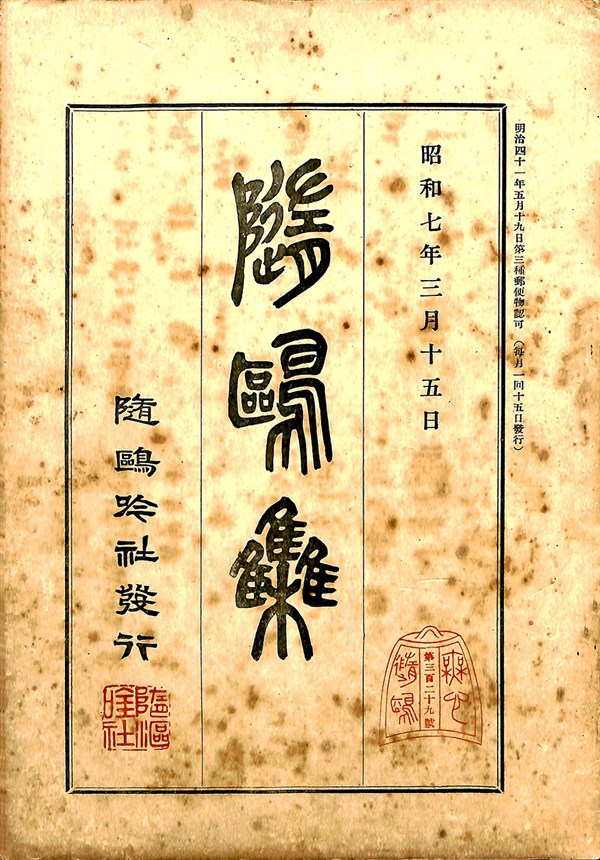 明治四十一年五月十九日第三種郵便物認可 (每月一回十五日發行)
昭和七年三月十五日
第三百二十九號
無心
隨鷗
隨鷗集
隨鷗吟社發行
隨鷗吟社